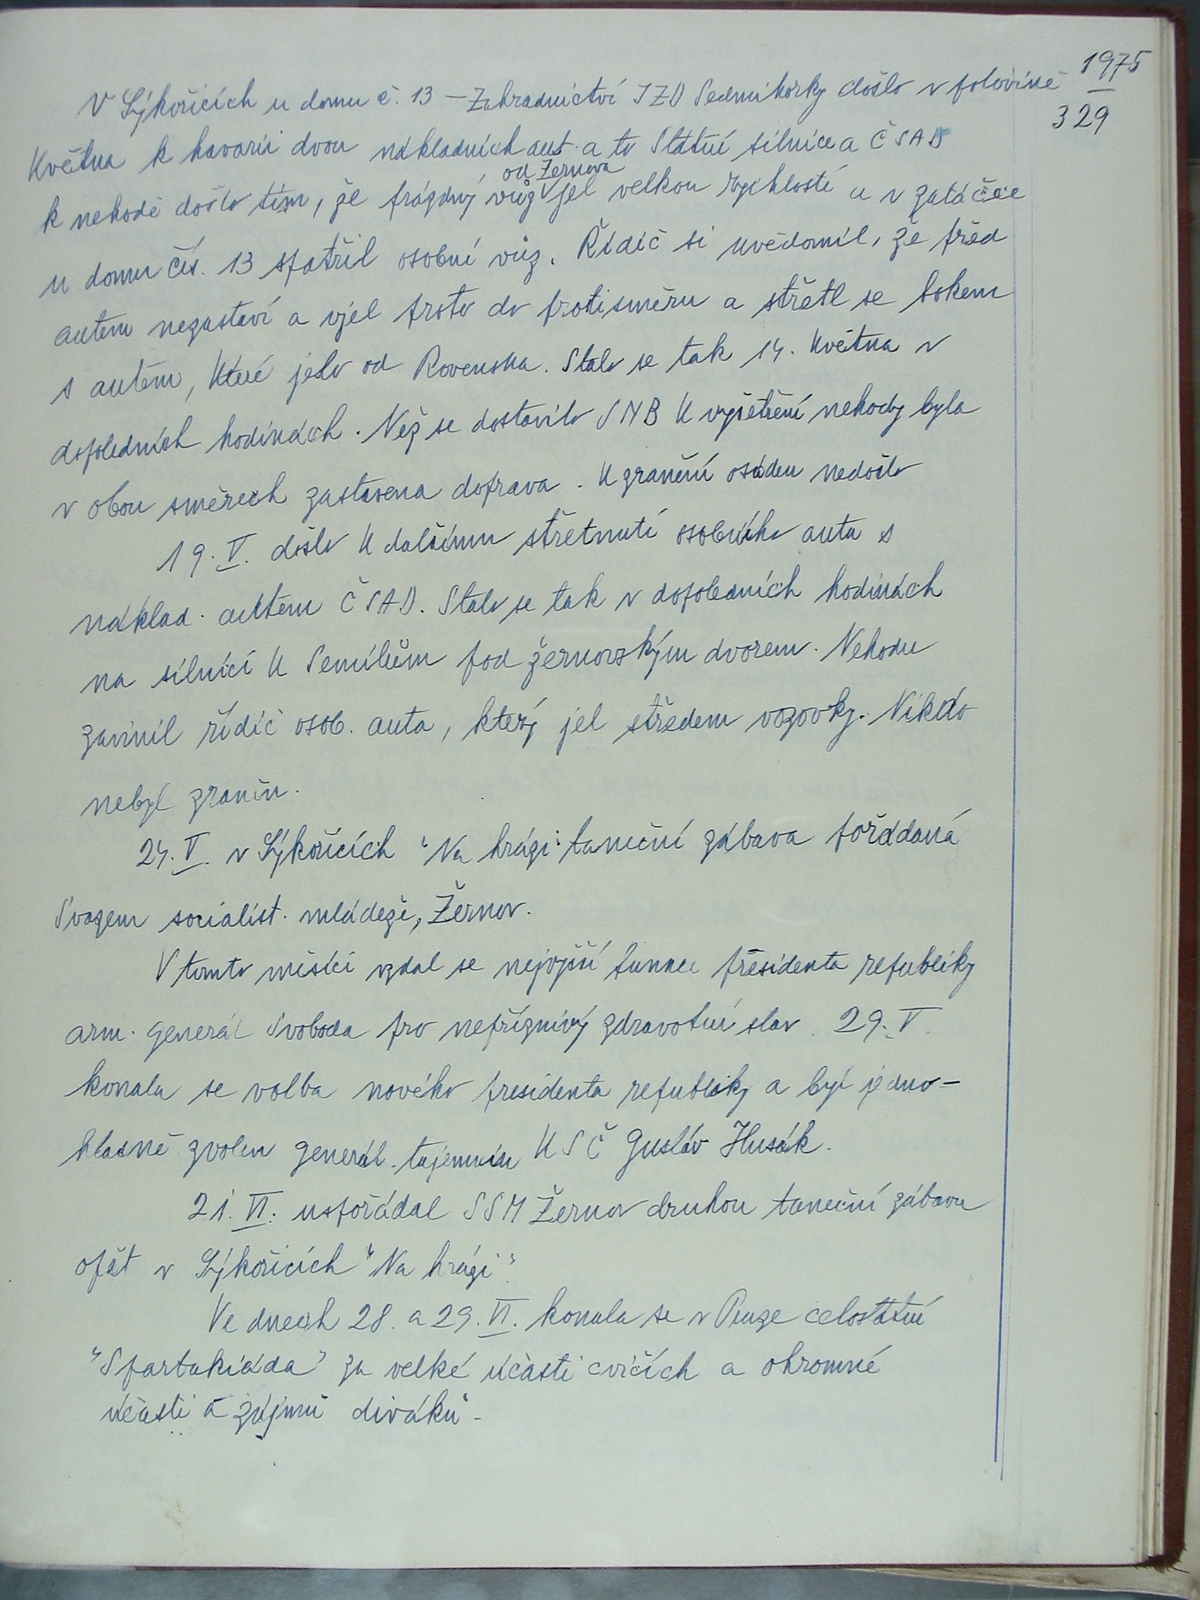 1975
329
V Sýkořicích u domu č. 13 – Zahradnictví JZD Sedmihorky došlo v polovině
května k havarii dvou nákladních aut a to Státní silnice a ČSAD
k nehodě došlo tím, že prázdný vůz od Žernova jel velkou rychlostí a v zatáčce
u domu čís. 13 spatřil osobní vůz. Řidič si uvědomil, že před
autem nezastaví a vjel proto do protisměru a střetl se bokem
s autem, které jelo od Rovenska. Stalo se tak 14. května v
dopoledních hodinách. Než se dostavilo SNB k vyšetření nehody byla
v obou směrech zastavena doprava. K zranění osádeu nedošlo
19. V. došlo k dalšímu střetnutí osobního auta s
náklad. autem ČSAD. Stalo se tak v dopoledních hodinách
na silnici k Semilům pod žernovským dvorem. Nehodu
zavinil řidič osob. auta, který jel středem vozovky. Nikdo
nebyl zraněn.
24. V. v Sýkořicích "Na hrázi" taneční zábava pořádaná
Svazem socialist. mládeže, Žernov.
V tomto měsíci vzdal se nejvyšší funkce presidenta republiky
arm. generál Svoboda pro nepříznivý zdravotní stav. 29. V.
konala se volba nového presidenta republiky a byl jedno-
hlasně zvolen generál. tajemník KSČ Gustáv Husák.
21. VI. uspořádal SSM Žernov druhou taneční zábavu
opět v Sýkořicích "Na hrázi".
Ve dnech 28. a 29. VI. konala se v Praze celostátní
"Spartakiáda" za velké účasti cvičích a ohromné
účasti a zájmu diváků.